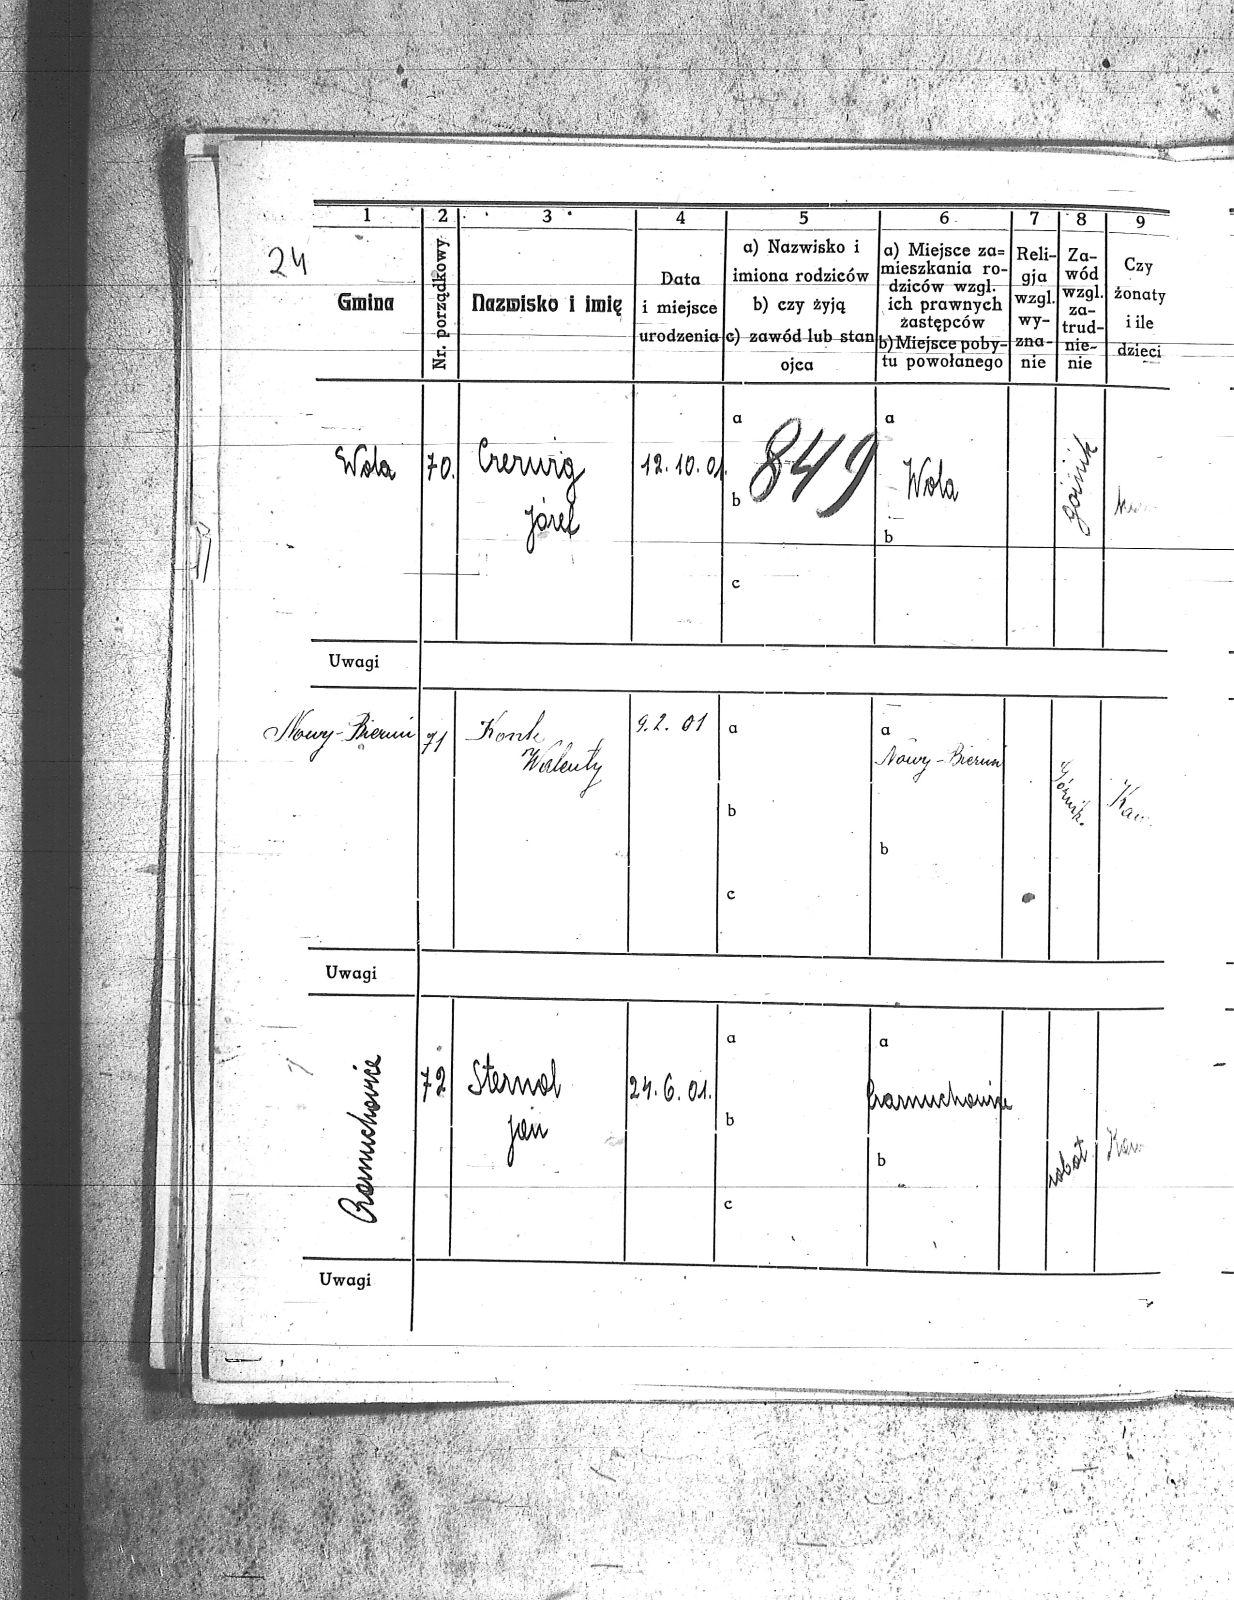 24
1 2 3 4 5 6 7 8 9
Gmina
Nr. porządkowy
Nazwisko i imię
Data
i miejsce
urodzenia
a) Nazwisko i
imiona rodziców
b) czy żyją
c) zawód lub stan
ojca
a) Miejsce za=
mieszkania ro-
dziców wzgl.
ich prawnych
zastępców
b) Miejsce poby-
tu powołanego
Reli-
gja
wzgl.
wy-
zna-
nie
Za-
wód
wzgl.
za-
trud-
nie-
nie
Czy
żonaty
i ile
dzieci
Wola
70.
Józef
12.10.01.
a
849
b
c
a
Wola
b
Uwagi
Nowy-Bieruń
71
Walenty
9.2.01
a
b
c
a
Nowy-Bieruń
b
Górnik.
Kaw
Uwagi
Czarnuchowice
72
Sternal
Jan
24.6.01.
a
b
c
a
Czarnuchowice
b
robot
Kaw
Uwagi